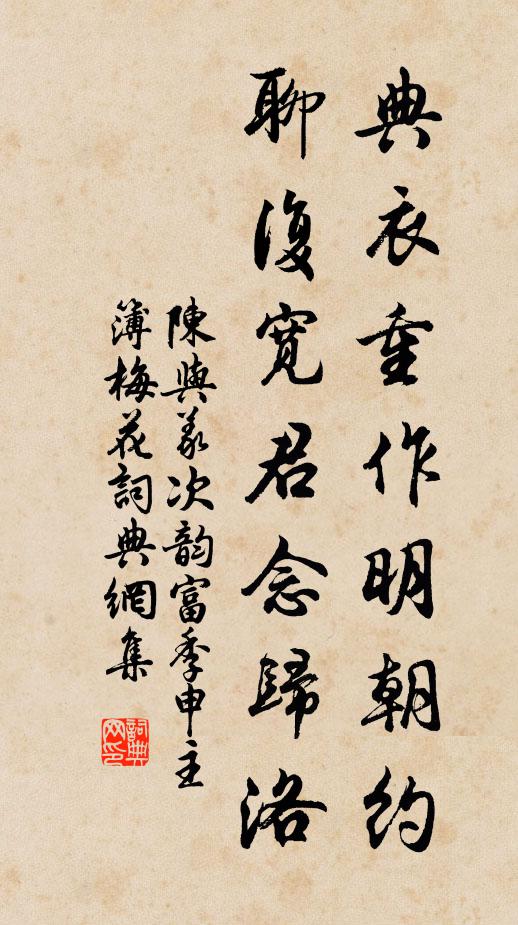 典衣重作明朝約
聊復寬君念歸洛
陳與義次韵富季申主
簿梅花詞典網集
詞典
网印